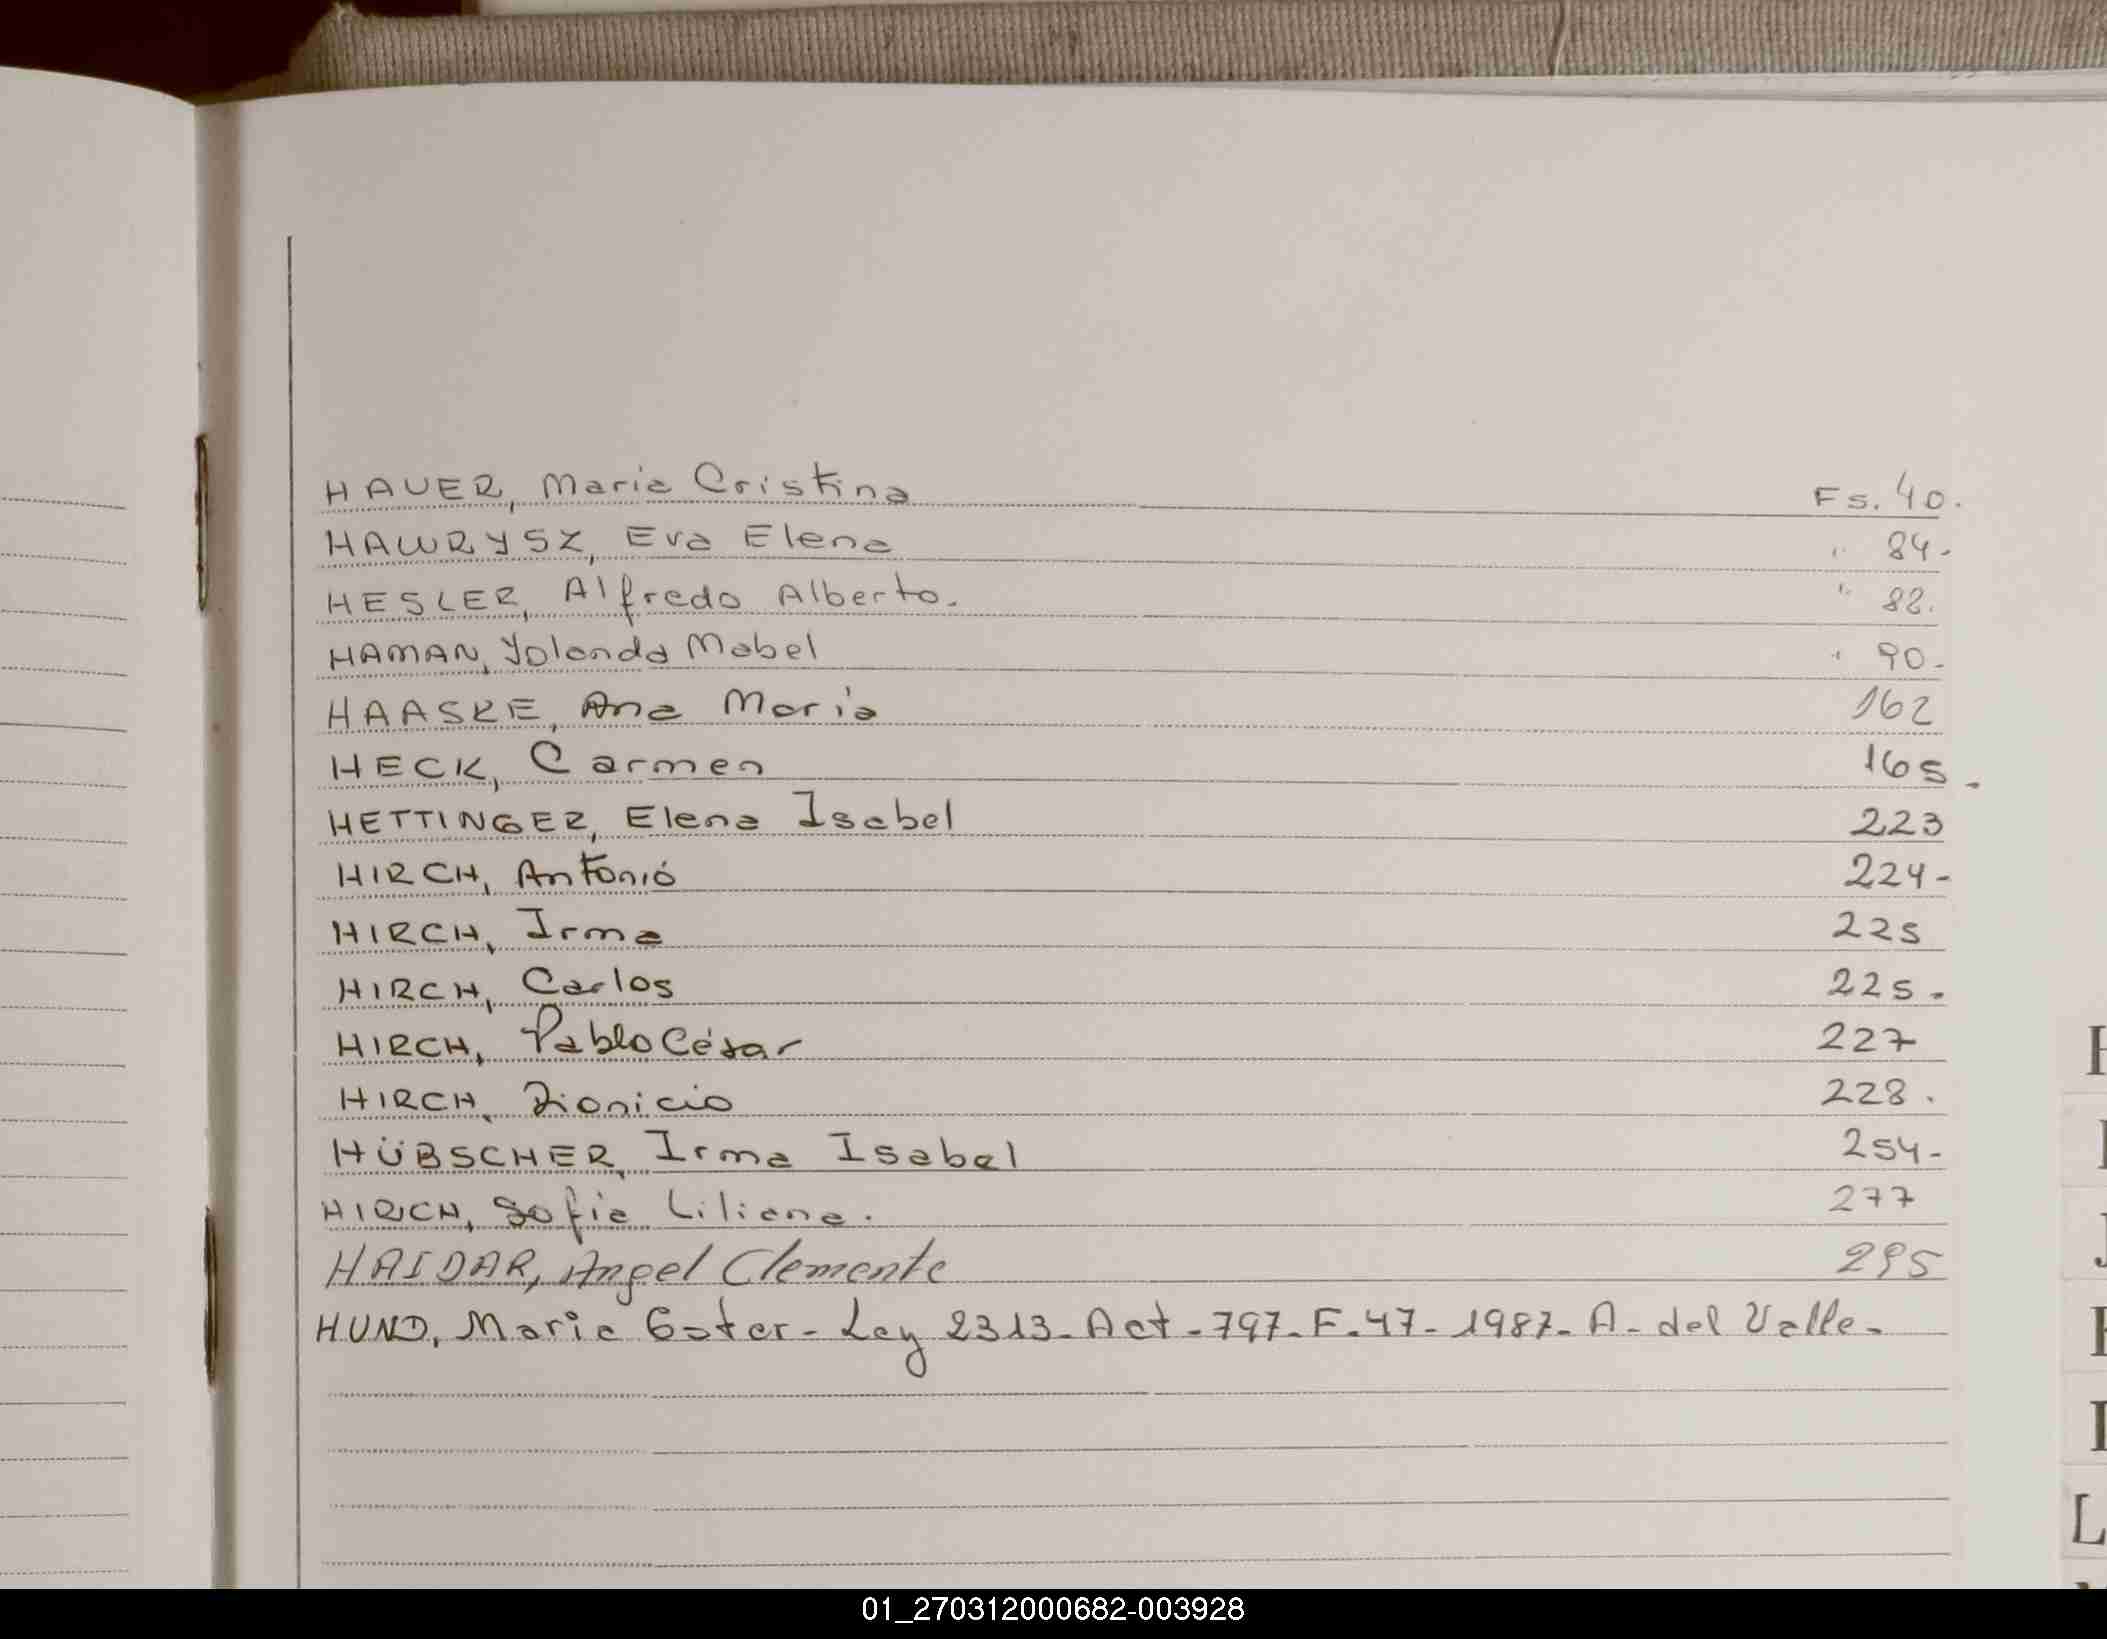 HAUER, Maria Cristina Fs. 40.
HAWRYSZ, Eva Elena " 84-
HESLER, Alfredo Alberto. " 88.
HAMAN, Yolanda Mabel " 90-
HAASKE, Ana Maria 162
HECK, Carmen 165-
HETTINGER, Elena Isabel 223
HIRCH, Antonió 224-
HIRCH, Irma 225
HIRCH, Carlos 225.
HIRCH, Pablo César 227
HIRCH, Dionicio 228.
HÜBSCHER, Irma Isabel 254-
HIRCH, Sofia Liliana. 277
HAIDAR, Angel Clemente 295
HUND, Maria Ester- Ley 2313- Act- 797- F.47- 1987- A- del Valle-
L
01_270312000682-003928